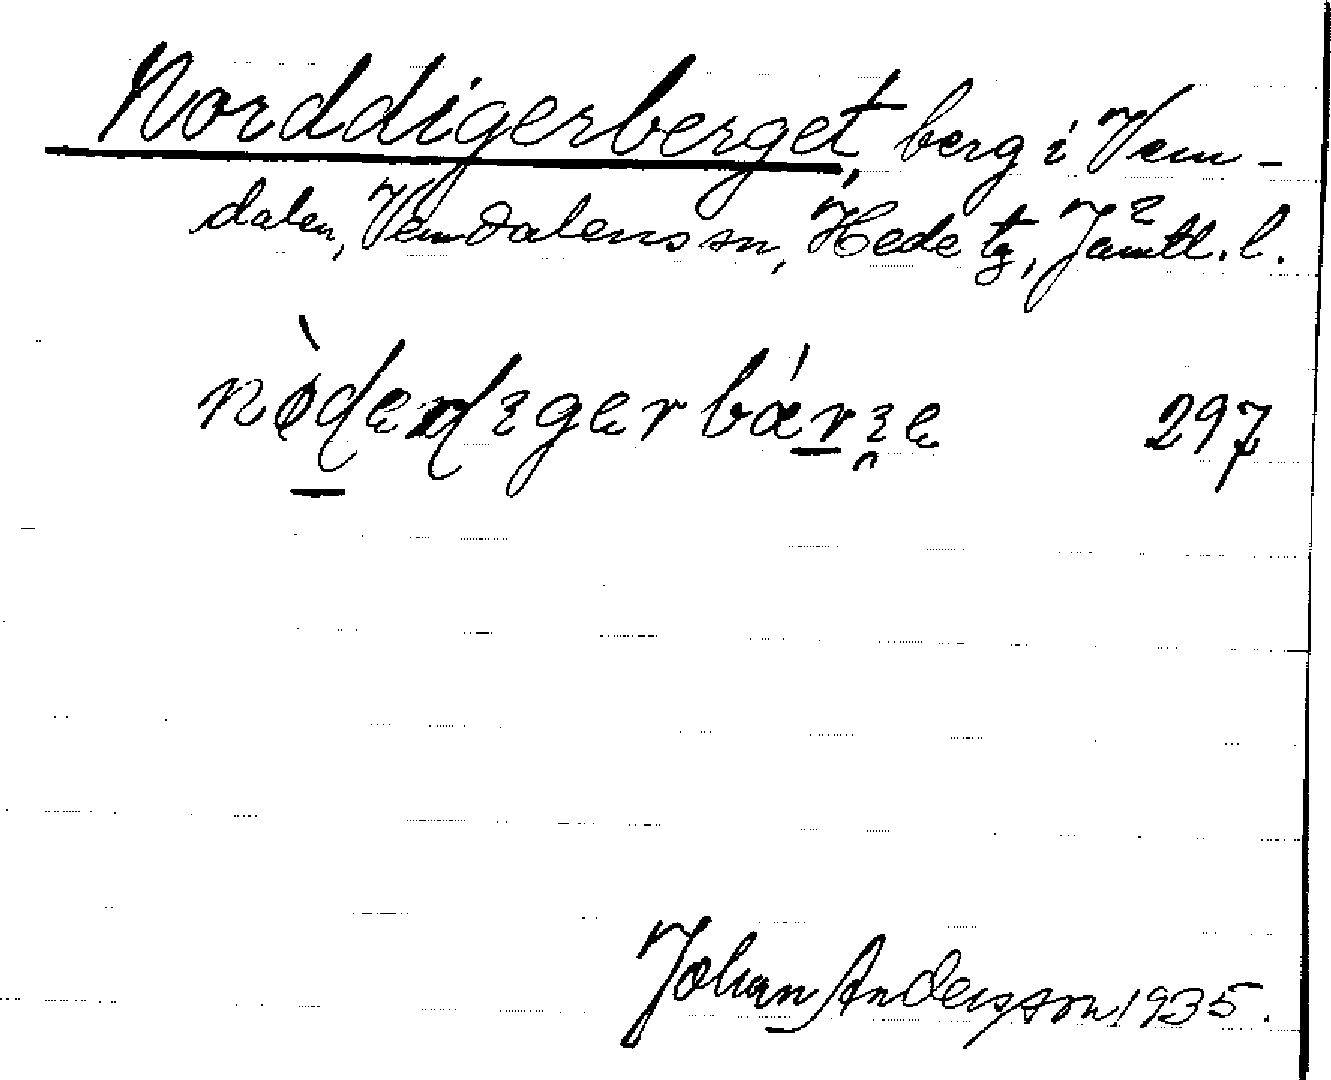 Norddigerberget, berg i Vem-
dalen, Vemdalens sn, Hede tg, Jämtl. l.
297
Johan Andersson 1935.